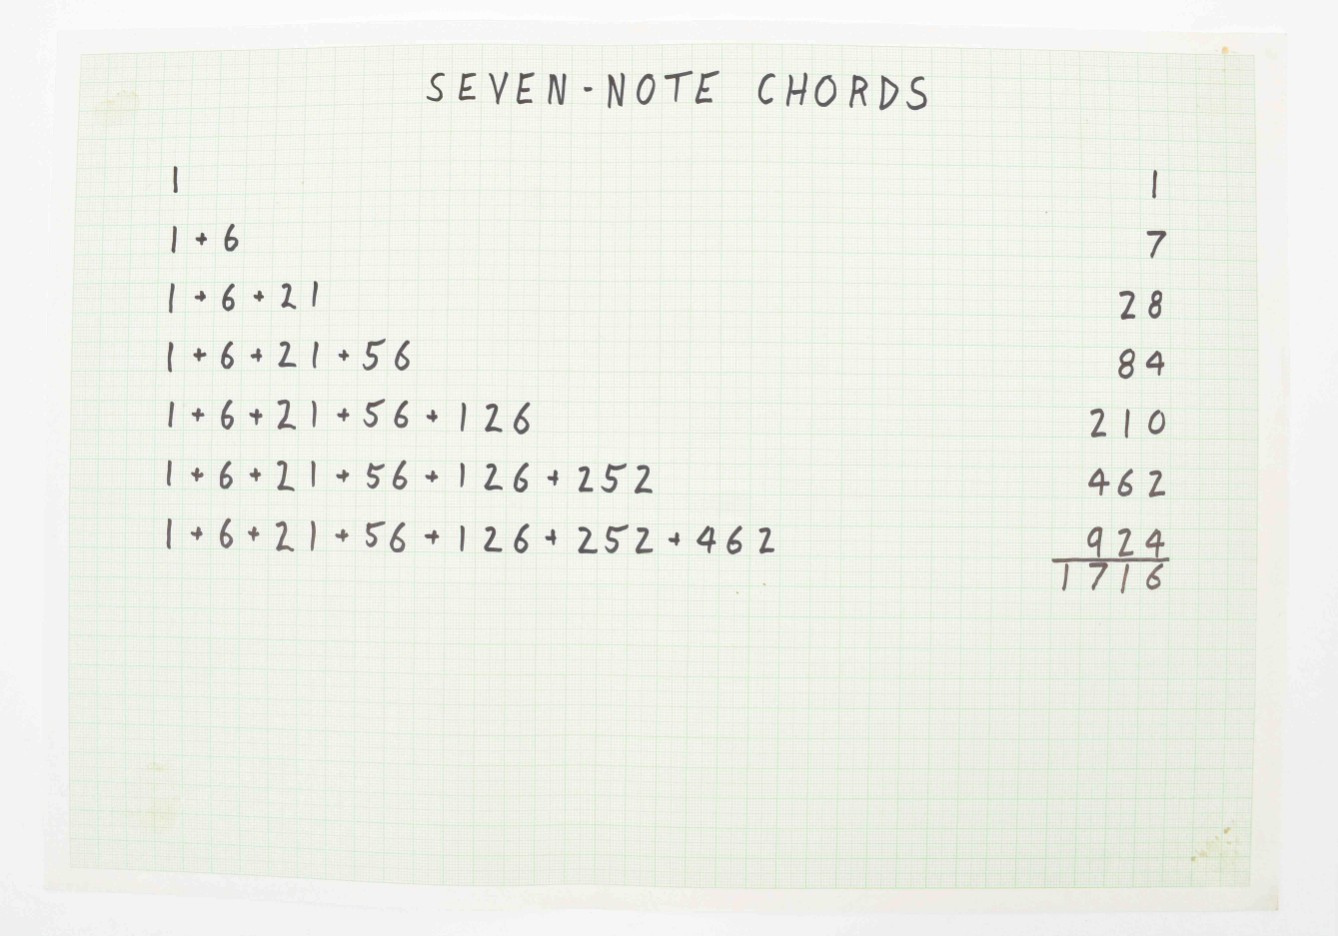 SEVEN-NOTE CHORDS
1 1
1 + 6 7
1 + 6 + 21 28
1 + 6 + 21 + 56 84
1 + 6 + 21 + 56 + 126 210
1 + 6 + 21 + 56 + 126 + 252 462
1 + 6 + 21 + 56 + 126 + 252 + 462 924
1716